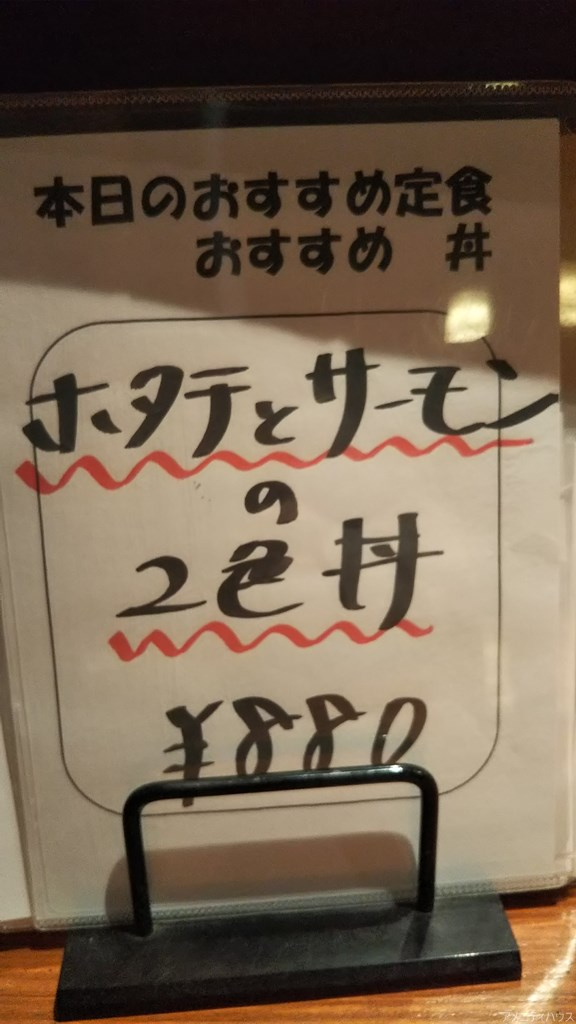 本日のおすすめ定食
おすすめ 丼
ホタテとサーモン
の
2色丼
¥880